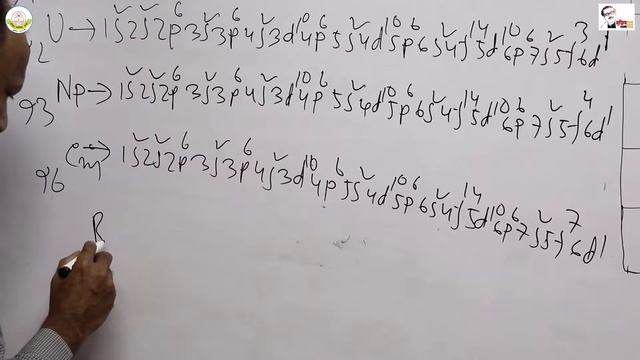 92 U → 1s² 2s² 2p⁶ 3s² 3p⁶ 4s² 3d¹⁰ 4p⁶ 5s² 4d¹⁰ 5p⁶ 6s² 4f¹⁴ 5d¹⁰ 6p⁶ 7s² 5f³ 6d¹
93 Np → 1s² 2s² 2p⁶ 3s² 3p⁶ 4s² 3d¹⁰ 4p⁶ 5s² 4d¹⁰ 5p⁶ 6s² 4f¹⁴ 5d¹⁰ 6p⁶ 7s² 5f⁴ 6d¹
96 Cm → 1s² 2s² 2p⁶ 3s² 3p⁶ 4s² 3d¹⁰ 4p⁶ 5s² 4d¹⁰ 5p⁶ 6s² 4f¹⁴ 5d¹⁰ 6p⁶ 7s² 5f⁷ 6d¹
R